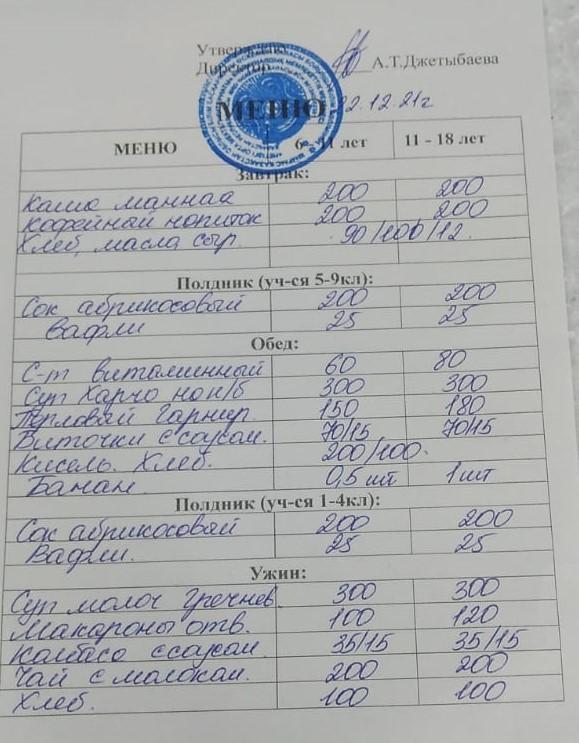 Утверждаю
Директор А.Т.Джетыбаева
МЕНЮ 22.12.21г
МЕНЮ 6 - 11 лет 11 - 18 лет
Завтрак:
Каша манная 200 200
Кофейный напиток 200 200
Хлеб, масла сыр. 90/100/12.
Полдник (уч-ся 5-9кл):
Сок абрикосовый 200 200
Вафли 25 25
Обед:
С-т витаминный 60 80
Суп Харчо на к/б 300 300
Перловый гарнир. 150 180
Биточки с соусом. 70/15 70/15
Кисель. Хлеб. 200/100.
Банан. 0,5 шт 1 шт
Полдник (уч-ся 1-4кл):
Сок абрикосовый 200 200
Вафли. 25 25
Ужин:
Суп молоч гречнев. 300 300
Макароны отв. 100 120
Калбаса с соусом 35/15 35/15
Чай с малоком. 200 200
Хлеб. 100 100